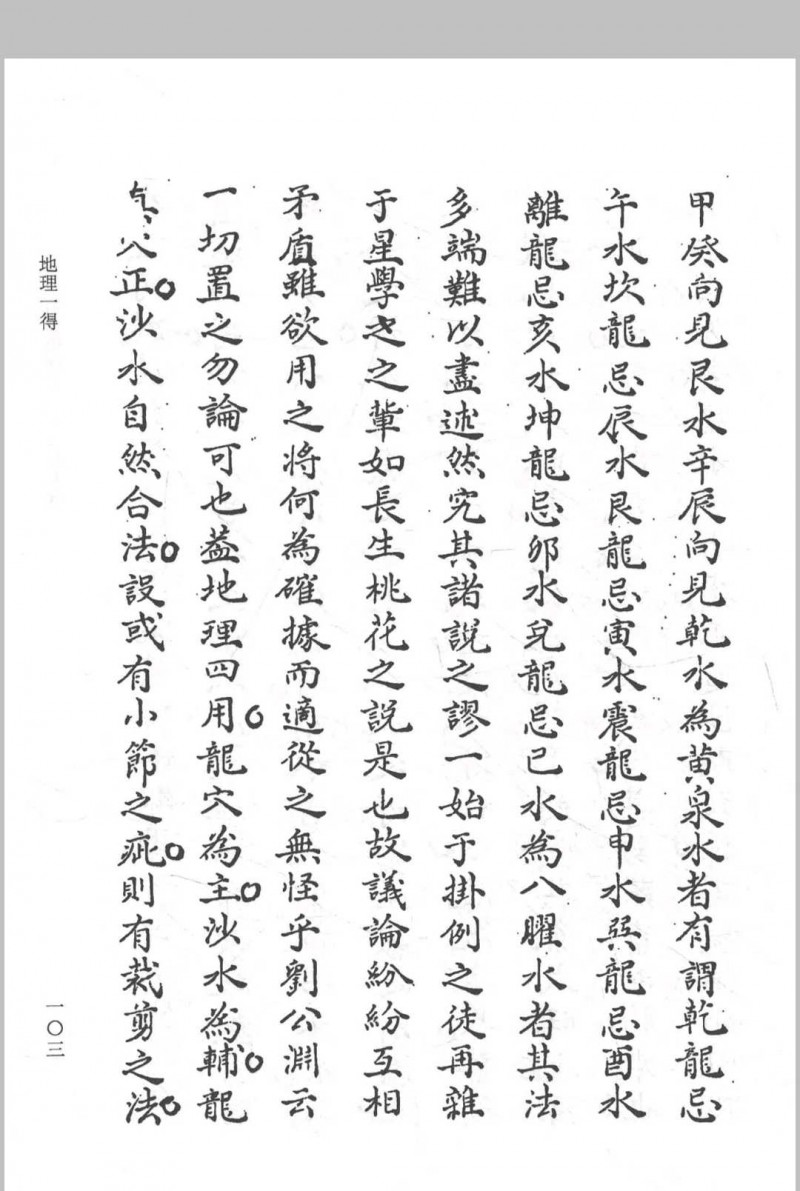 甲癸向見艮水辛辰向見乾水為黄泉水者有謂乾龍忌
午水坎龍忌辰水艮龍忌寅水震龍忌申水巽龍忌酉水
離龍忌亥水坤龍忌卯水兌龍忌已水為八曜水者其法
多端難以盡述然究其諸說之謬一始于掛例之徒再雜
于星學之輩如長生桃花之說是也故議論紛紛互相
矛盾雖欲用之將何為確據而適從之無怪乎劉公淵云
一切置之勿論可也葢地理四用龍穴為主沙水為輔龍
正沙水自然合法設或有小節之疵則有裁剪之法
地理一得
一〇三